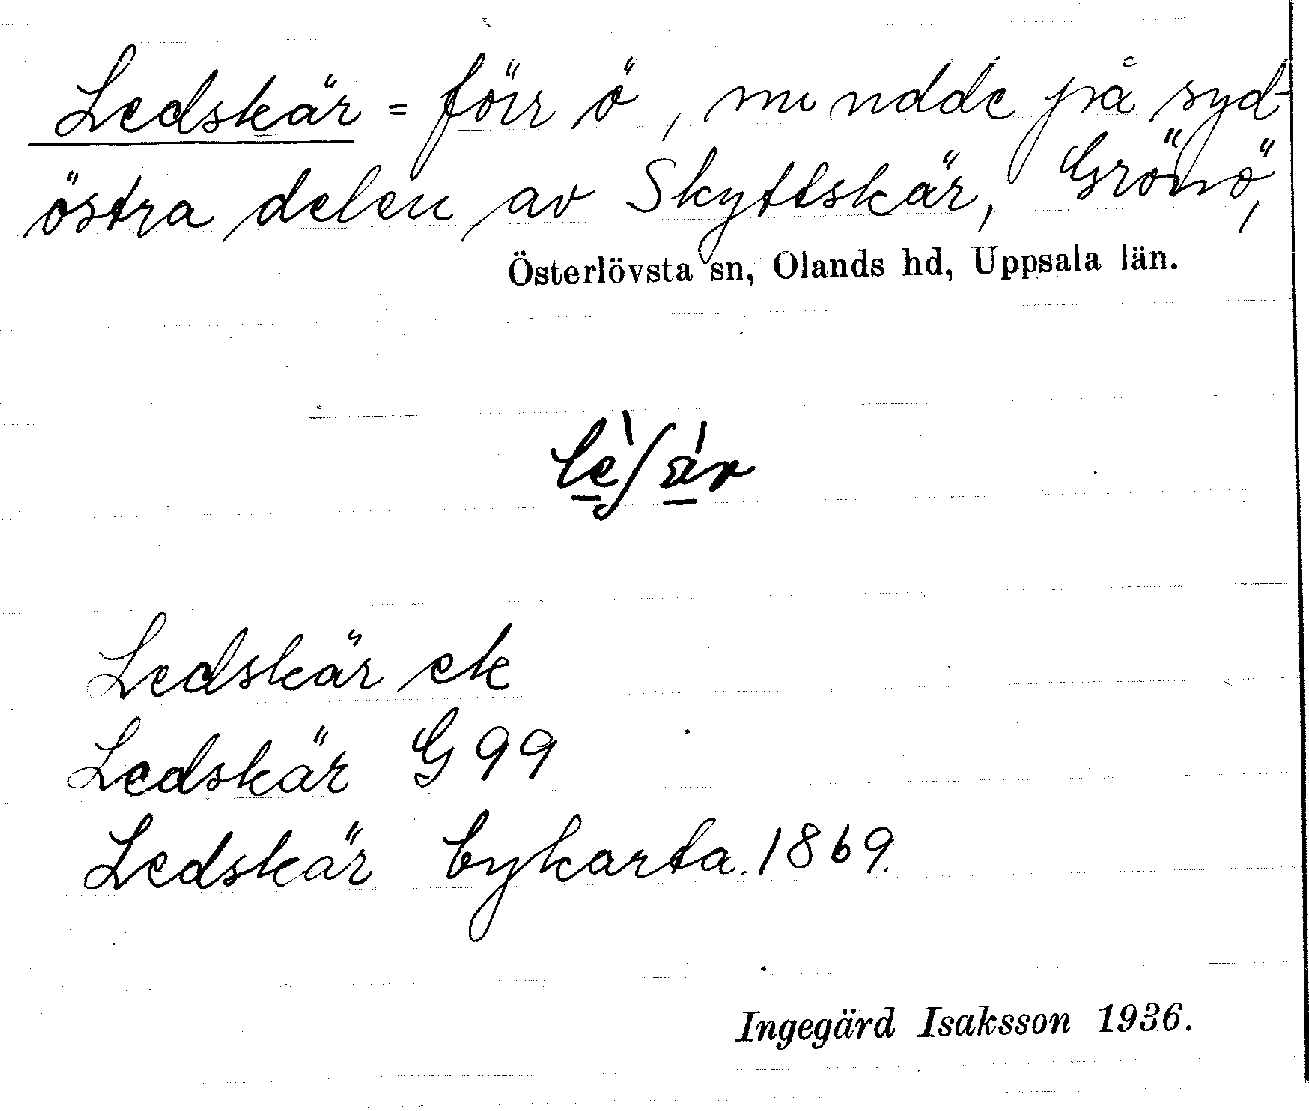 Ledskär = förr ö, nu udde på syd-
östra delen av Skyttskär, Grönö,
Österlövsta sn, Olands hd, Uppsala län.
Ledskär ek
Ledskär G 99
Ledskär bykarta 1869.
Ingegärd Isaksson 1936.